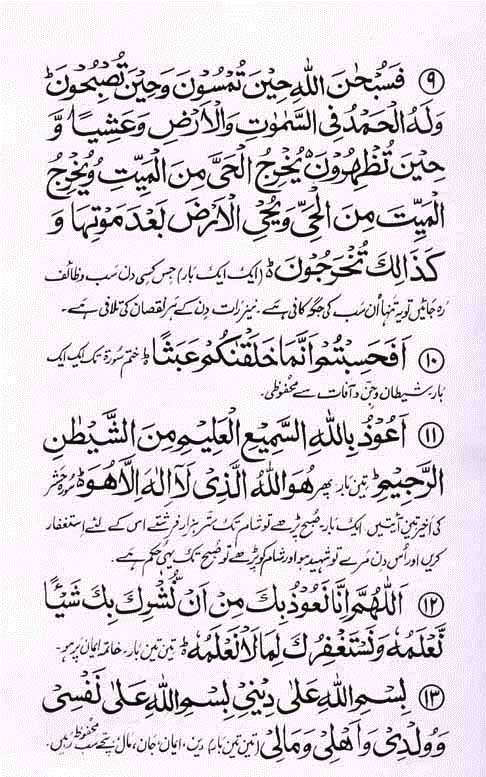 ۹ فَسُبْحٰنَ اللهِ حِيْنَ تُمْسُوْنَ وَحِيْنَ تُصْبِحُوْنَ ط
وَلَهُ الْحَمْدُ فِى السَّمٰوٰتِ وَالْاَرْضِ وَعَشِيًّا وَّ
حِيْنَ تُظْهِرُوْنَ يُخْرِجُ الْحَىَّ مِنَ الْمَيِّتِ وَيُخْرِجُ
الْمَيِّتَ مِنَ الْحَىِّ وَيُحْىِ الْاَرْضَ بَعْدَ مَوْتِهَا وَ
كَذَالِكَ تُخْرَجُوْنَ ط (ایک ایک بار) جس کسی دن سب وظائف
رہ جائیں تو یہ تنہا اُن سب کی جگہ کافی ہے۔ نیز رات دن کے ہر نقصان کی تلافی ہے۔
۱۰ اَفَحَسِبْتُمْ اَنَّمَا خَلَقْنٰكُمْ عَبَثًا ط ختم سورۃ تک ایک ایک
بار شیطان وجن و آفات سے محفوظی۔
۱۱ اَعُوْذُ بِاللهِ السَّمِيْعِ الْعَلِيْمِ مِنَ الشَّيْطٰنِ
الرَّجِيْمِ ط تین بار پھر هُوَ اللهُ الَّذِىْ لَا اِلٰهَ اِلَّا هُوَ ط سورۃ حشر
کی اخیر تین آیتیں ایک بار۔ صبح پڑھے تو شام تک ستر ہزار فرشتے اس کے لئے استغفار
کریں اور اُس دن مرے تو شہید ہو اور شام کو پڑھے تو صبح تک یہی حکم ہے۔
۱۲ اَللّٰهُمَّ اِنَّا نَعُوْذُ بِكَ مِنْ اَنْ نُّشْرِكَ بِكَ شَيْئًا
نَّعْلَمُهٗ وَنَسْتَغْفِرُكَ لِمَا لَا نَعْلَمُهٗ ط تین تین بار۔ خاتمہ ایمان پر ہو۔
۱۳ بِسْمِ اللهِ عَلٰى دِيْنِىْ بِسْمِ اللهِ عَلٰى نَفْسِىْ
وَوُلْدِىْ وَاَهْلِىْ وَمَالِىْ (تین تین بار) دین، ایمان، جان، مال، بچے سب محفوظ رہیں۔